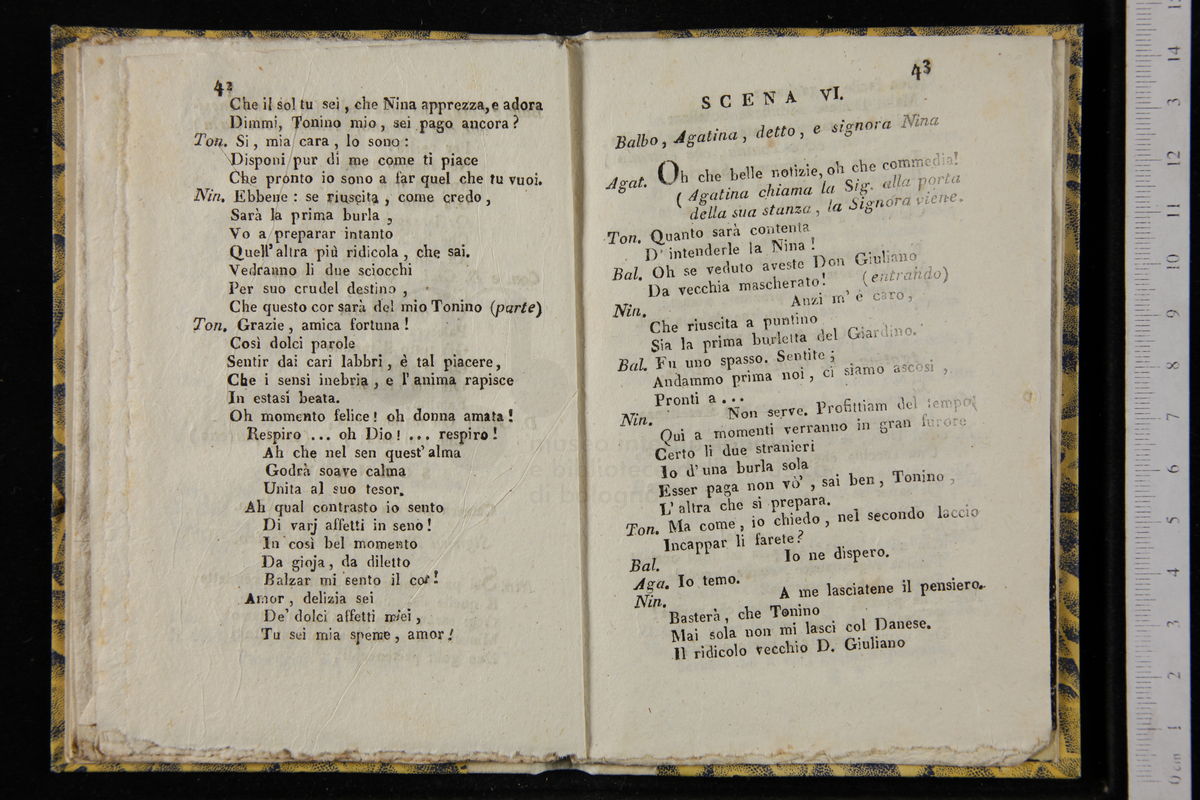 42
Che il sol tu sei, che Nina apprezza, e adora
Dimmi, Tonino mio, sei pago ancora?
Ton. Si, mia cara, lo sono:
Disponi pur di me come ti piace
Che pronto io sono a far quel che tu vuoi.
Nin. Ebbene: se riuscita, come credo,
Sarà la prima burla,
Vo a preparar intanto
Quell' altra più ridicola, che sai.
Vedranno li due sciocchi
Per suo crudel destino,
Che questo cor sarà del mio Tonino (parte)
Ton. Grazie, amica fortuna!
Così dolci parole
Sentir dai cari labbri, è tal piacere,
Che i sensi inebria, e l' anima rapisce
In estasi beata.
Oh momento felice! oh donna amata!
Respiro ... oh Dio! ... respiro!
Ah che nel sen quest' alma
Godrà soave calma
Unita al suo tesor.
Ah qual contrasto io sento
Di varj affetti in seno!
In così bel momento
Da gioja, da diletto
Balzar mi sento il cor!
Amor, delizia sei
De' dolci affetti miei,
Tu sei mia speme, amor!
43
SCENA VI.
Balbo, Agatina, detto, e signora Nina
Agat. Oh che belle notizie, oh che commedia!
(Agatina chiama la Sig. alla porta
della sua stanza, la Signora viene.
Ton. Quanto sarà contenta
D' intenderle la Nina!
Bal. Oh se veduto aveste Don Giuliano
Da vecchia mascherato! (entrando)
Nin. Anzi m' è caro,
Che riuscita a puntino
Sia la prima burletta del Giardino.
Bal. Fu uno spasso. Sentite;
Andammo prima noi, ci siamo ascosi,
Pronti a ...
Nin. Non serve. Profittiam del tempo;
Qui a momenti verranno in gran furore
Certo li due stranieri
Io d' una burla sola
Esser paga non vò, sai ben, Tonino,
L' altra che si prepara.
Ton. Ma come, io chiedo, nel secondo laccio
Incappar li farete?
Bal. Io ne dispero.
Aga. Io temo.
Nin. A me lasciatene il pensiero.
Basterà, che Tonino
Mai sola non mi lasci col Danese.
Il ridicolo vecchio D. Giuliano
museo
biblioteca
di bologna